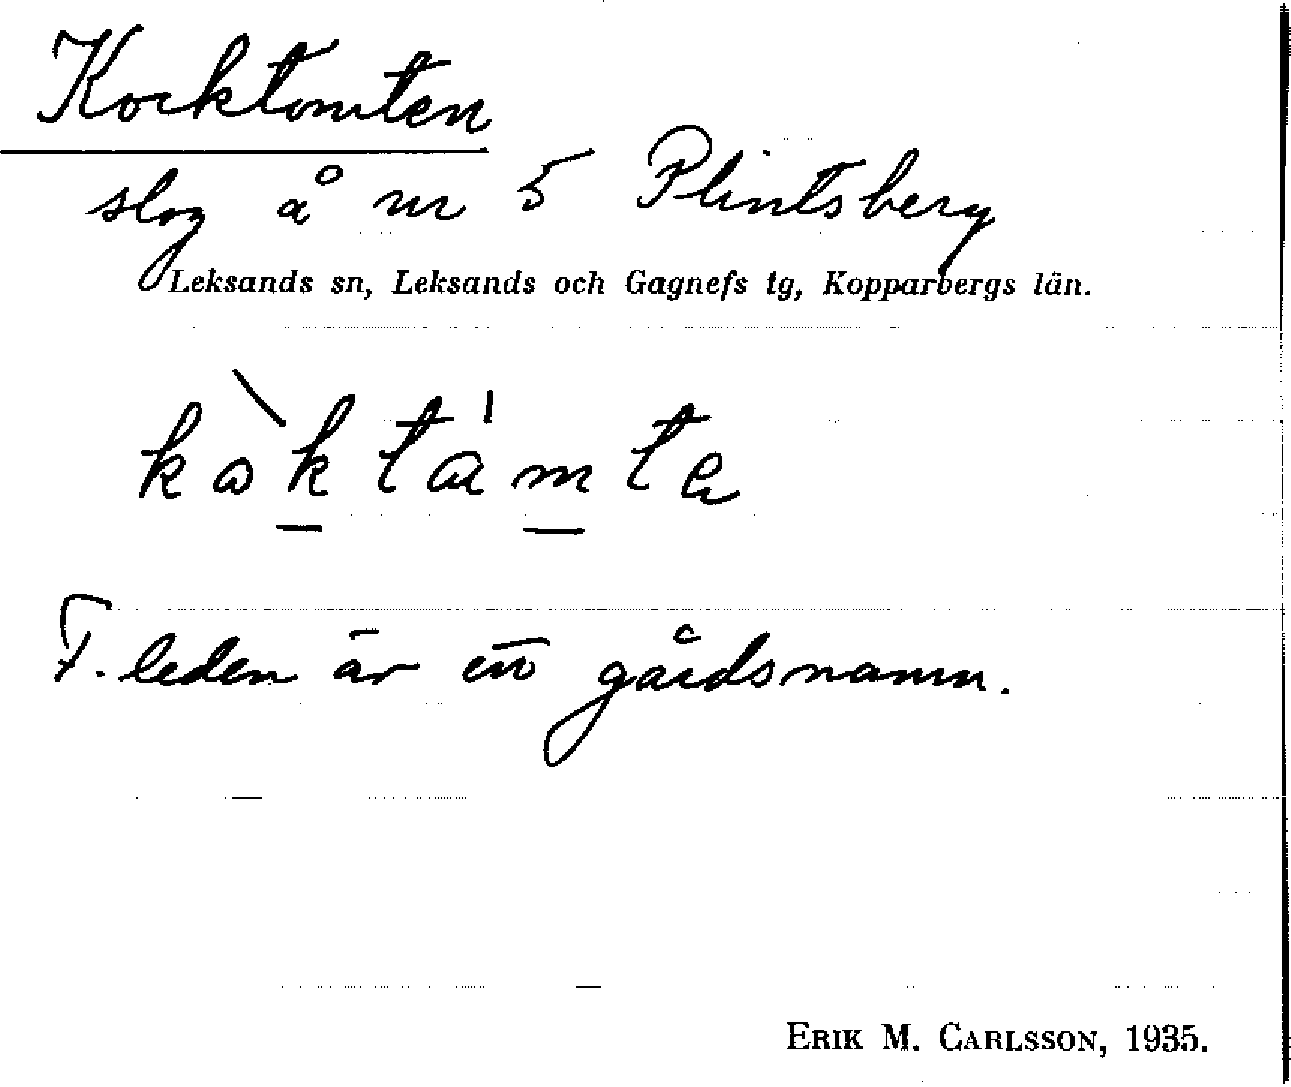 Kocktomten
slog å nr 5 Plintsberg
Leksands sn, Leksands och Gagnefs tg, Kopparbergs län.
F. leden är ett gårdsnamn.
ERIK M. CARLSSON, 1935.